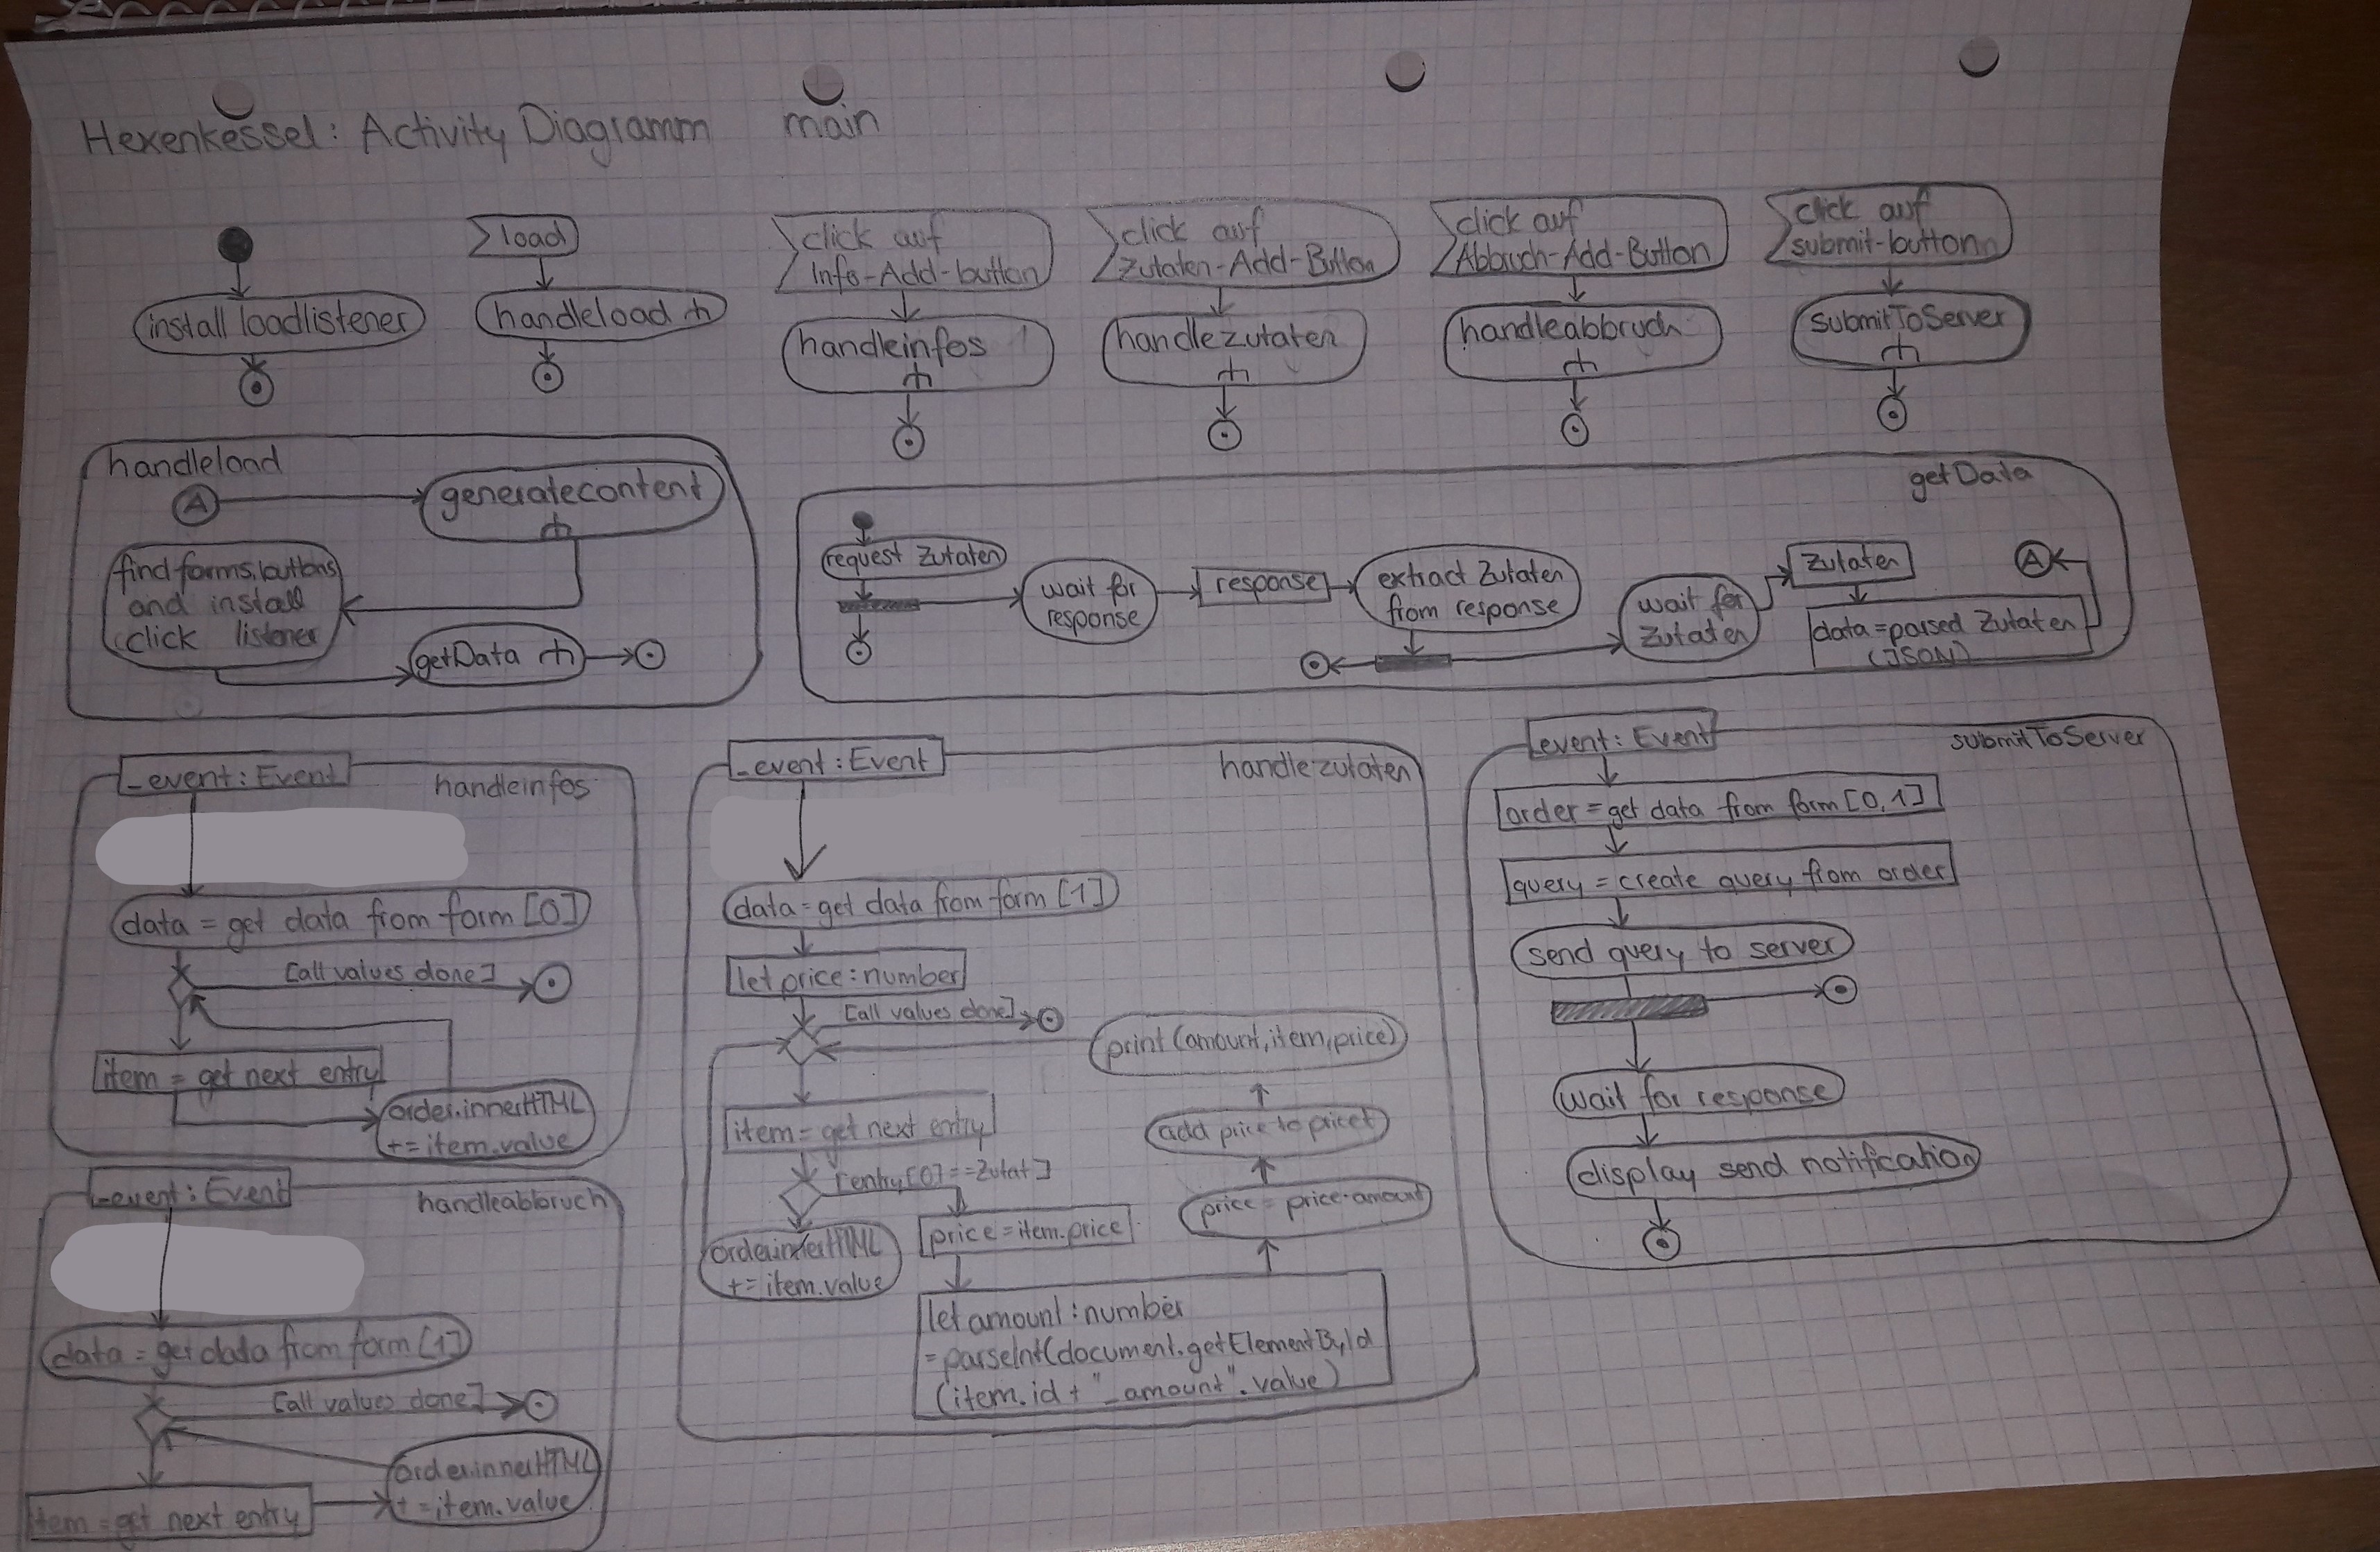 Hexenkessel: Activity Diagramm main
install loadlistener
load
handleload
click auf
Info-Add-button
handleinfos
click auf
Zutaten-Add-Button
handlezutaten
click auf
Abbruch-Add-Button
handleabbruch
click auf
submit-button
submitToServer
handleload
A
generatecontent
find forms, buttons
and install
click listener
getData
getData
request Zutaten
wait for
response
response
extract Zutaten
from response
wait for
Zutaten
Zutaten
data = parsed Zutaten
(JSON)
A
_event: Event
handleinfos
data = get data from form [0]
[all values done]
item = get next entry
order.innerHTML
+= item.value
_event: Event
handleabbruch
data = get data from form [1]
[all values done]
item = get next entry
order.innerHTML
+= item.value
_event: Event
handlezutaten
data = get data from form [1]
let price: number
[all values done]
print (amount, item, price)
item = get next entry
add price to pricet
[entry[0] == Zutat]
price = price·amount
price = item.price
order.innerHTML
+= item.value
let amount: number
= parseInt(document.getElementById
(item.id + "_amount".value)
_event: Event
submitToServer
order = get data from form [0,1]
query = create query from order
send query to server
wait for response
display send notification